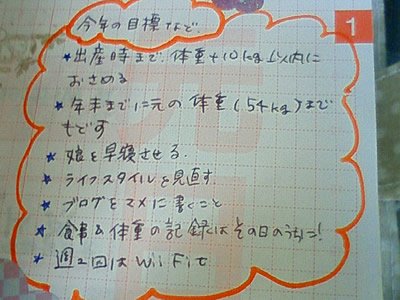 今年の目標など。
1
★出産時まで、体重+10kg以内に
おさめる
★年末までに元の体重(54kg)まで
もどす
★娘を早寝させる.
★ライフスタイルを見直す.
★ブログをマメに書くこと
★食事&体重の記録はその日のうちに!
★週2回はWii Fit